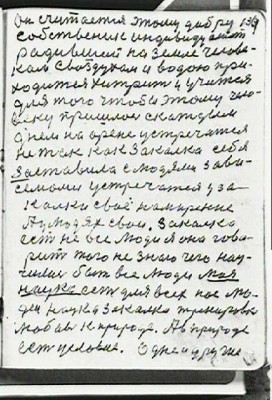 Он считается этому добру 139
собственик индивидуалист
родивший на земле челове-
ка. С воздухом и водою при-
ходится хитрить и учится
для того чтобы этому чело-
веку пришлось с каждым
днем на арене встречатся
не так как Закалка себя
заставила с людями зави-
симыми встречатся у за-
калки своё намирение
А у людях свои. Закалка
ест не все люди я она гово-
рит того не знаю чего нау-
чились быт все люди моя
наука ест для всех нас лю-
дей наука закалка тренировка
любов к природе. А в природе
ест условие. Одне и друг же